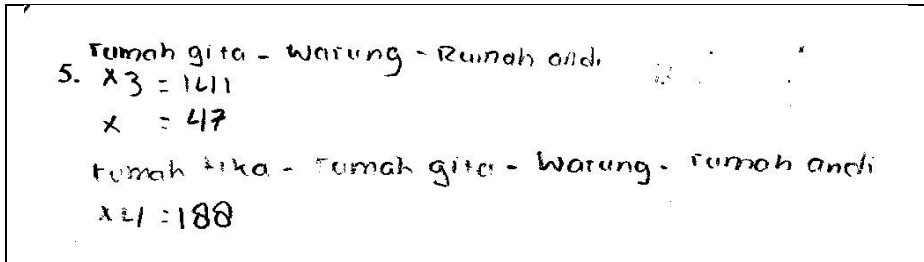 rumah gita - warung - Rumah andi
5. x3 = 141
x = 47
rumah tika - rumah gita - warung - rumah andi
x4 = 188